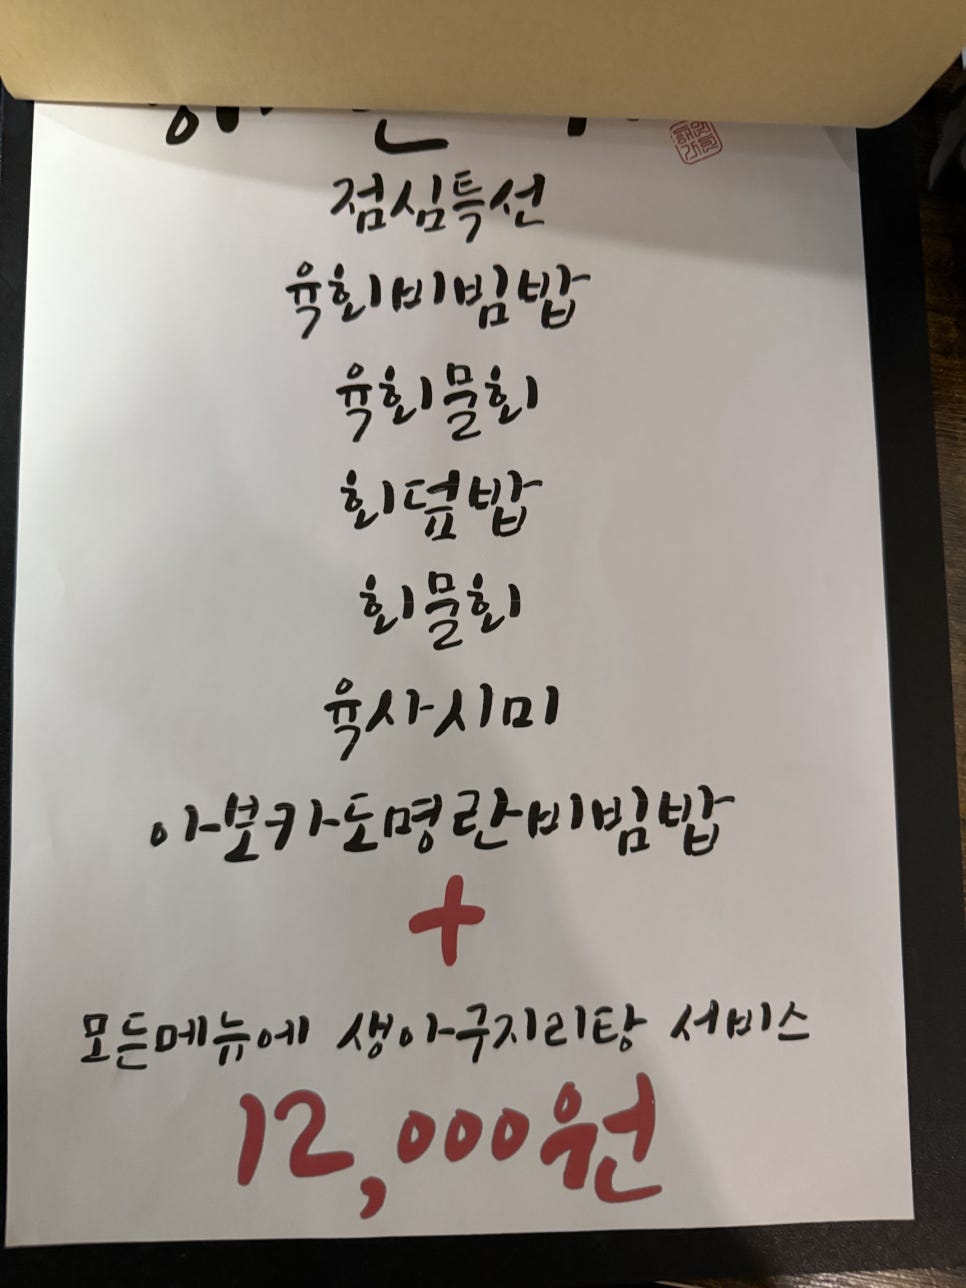 점심특선
육회비빔밥
육회물회
회덮밥
회물회
육사시미
아보카도명란비빔밥
+
모든메뉴에 생아구지리탕 서비스
12,000원